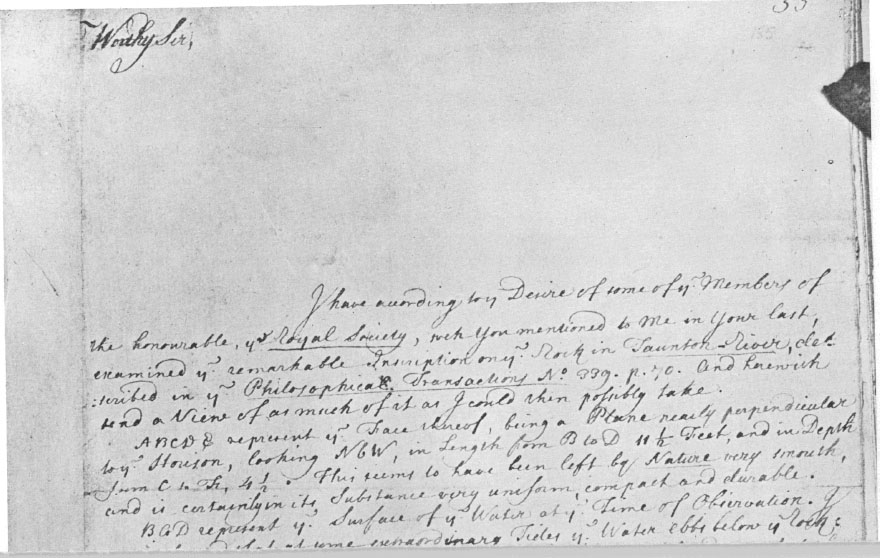 Worthy Sir,
I have according to yͤ Desire of some of yͤ Members of
the honourable, yͤ Royal Society, wch You mentioned to Me in Your last,
examined yͤ remarkable Inscription on yͤ Rock in Taunton-River, de-
:scribed in yͤ Philosophical Transactions Nº 339. p. 70. And herewith
send a View of as much of it as I could then possibly take.
ABCD represent yͤ Face thereof, being a Plane nearly perpendicular
to yͤ Horison, looking NbW, in Length from B to D 11½ Feet, and in Depth
from C to 4½. This seems to have been left by Nature very smooth,
and is certainly in its Substance very uniform, compact and durable.
BGD represent yͤ Surface of yͤ Water at yͤ Time of Observation.
at some extraordinary Tides yͤ Water ebbs below yͤ Rock: